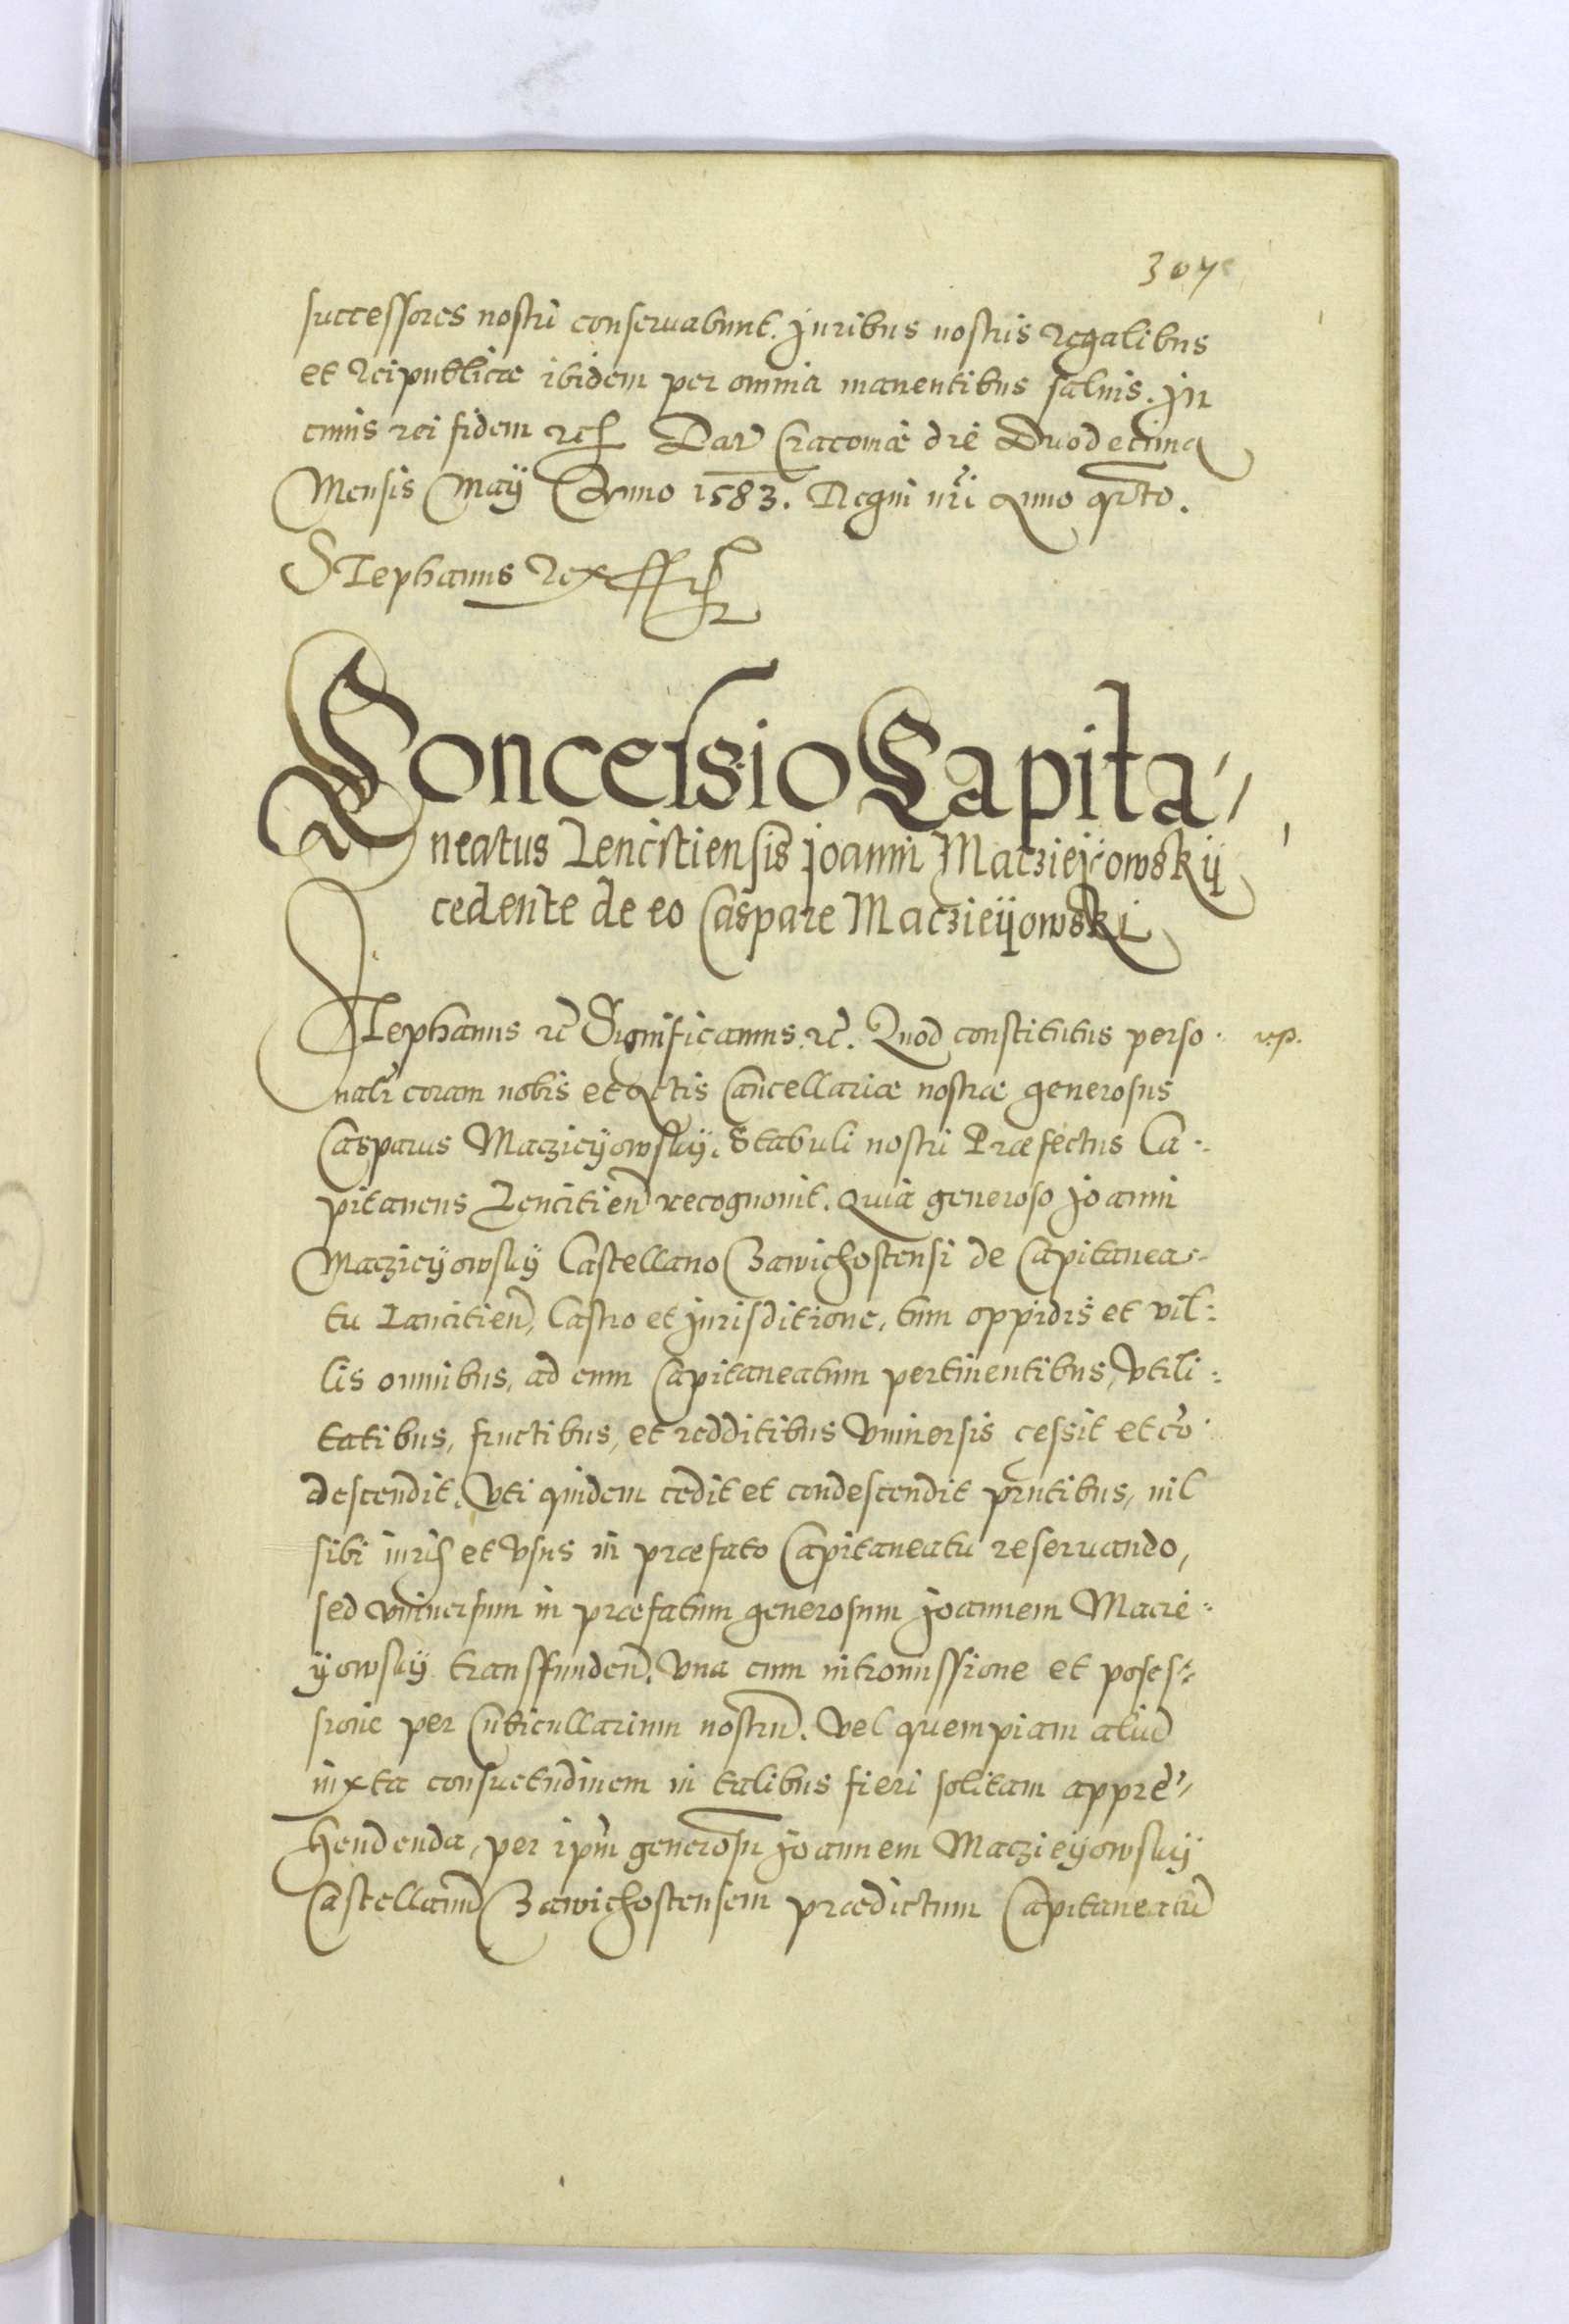 307
successores nostri conseruabunt. Juribus nostris regalibus
et Reipublicæ ibidem per omnia manentibus saluis. In
cuius rei fidem etc. Dat Cracouiæ die Duodecima
Mensis Maij Anno 1583. Regni nri Anno qrto.
Stephanus Rex
Concessio Capita„
neatus Lencitiensis Joanni Maczieiowskij
cedente de eo Caspare Macziejowski
Stephanus etc Significamus etc. Quod constitutus perso. v.p.
nalr coram nobis et Actis Cancellariæ nostræ generosus
Casparus Maczieijowskij, Stabuli nostri Præfectus Ca„
pitaneus Lencitien recognouit. Quia generoso Joanni
Maczieijowskij Castellano Zawichostensi de Capitanea„
tu Lancitien, Castro et jurisditione, tum oppidis et vil:
lis omnibus, ad eum Capitaneatum pertinentibus, vtili:
tatibus, fructibus, et redditibus vniuersis cessit et co
descendit, Vti quidem cedit et condescendit prntibus, nil
sibi iuris et vsus in præfato Capitaneatu reseruando,
sed vniuersum in præfatum generosum Joannem Macie:
ijowskij transffunden. Vna cum intromissione et poses„
sione per Cubicullarium nostru. vel quempiam aliud
iuxta consuetudinem in talibus fieri solitam appre„
hendenda, per ipm generosu Joannem Maczieijowskij
Castellanu Zawichostensem prædictum Capitaneatu